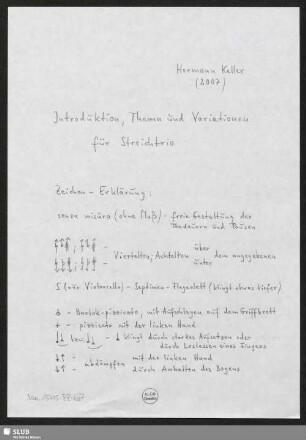 Hermann Keller
(2007)
Introduktion, Thema und Variationen
für Streichtrio
Zeichen-Erklärung:
senza misura (ohne Maß) - freie Gestaltung der
Tondauern und Pausen
über
- Viertelton, Achtelton dem angegebenen
unter
S (nur Violoncello) - Septimen-Flageolett (klingt etwas tiefer)
- Bartók-pizzicato, mit Aufschlagen auf dem Griffbrett
+ - pizzicato mit der linken Hand
bzw. - klingt durch starkes Aufsetzen oder
durch Loslassen eines Fingers
- abdämpfen mit der linken Hand
durch Anhalten des Bogens
SLUB
Wir führen Wissen.